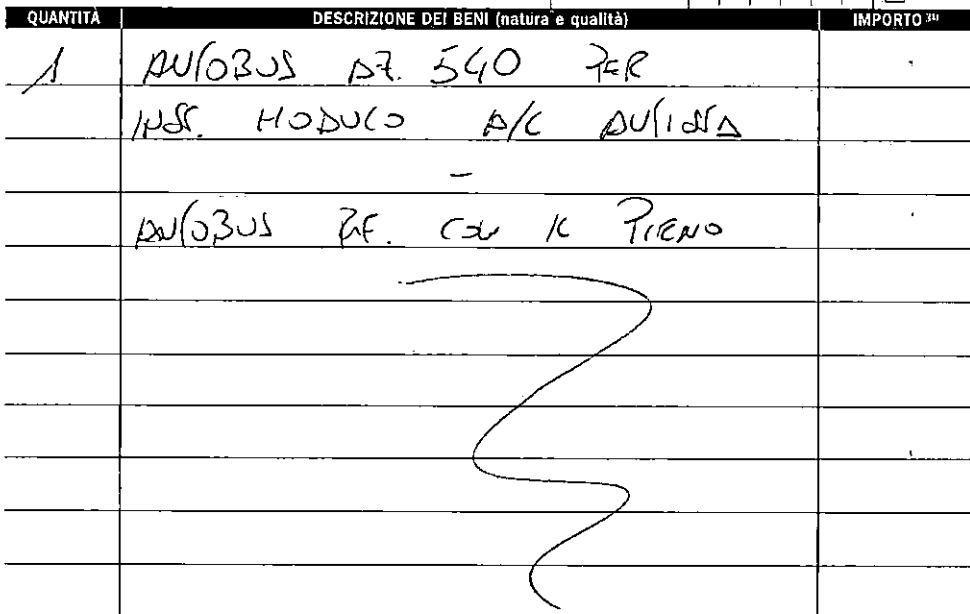 QUANTITÀ DESCRIZIONE DEI BENI (natura e qualità) IMPORTO
1 AUTOBUS AZ. 540 PER
INST. MODULO A/C AUTISTA
-
AUTOBUS CON IL PIENO